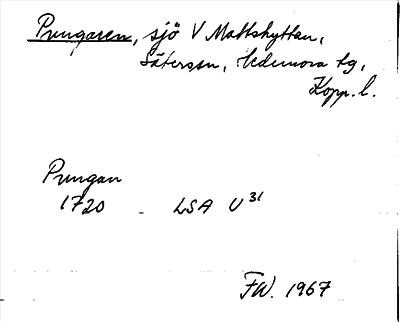 Pungaren, sjö V Mattshyttan,
Säterssn, Hedemora tg,
Kopp. l.
Pungan
1720 - LSA U³¹
FW. 1967